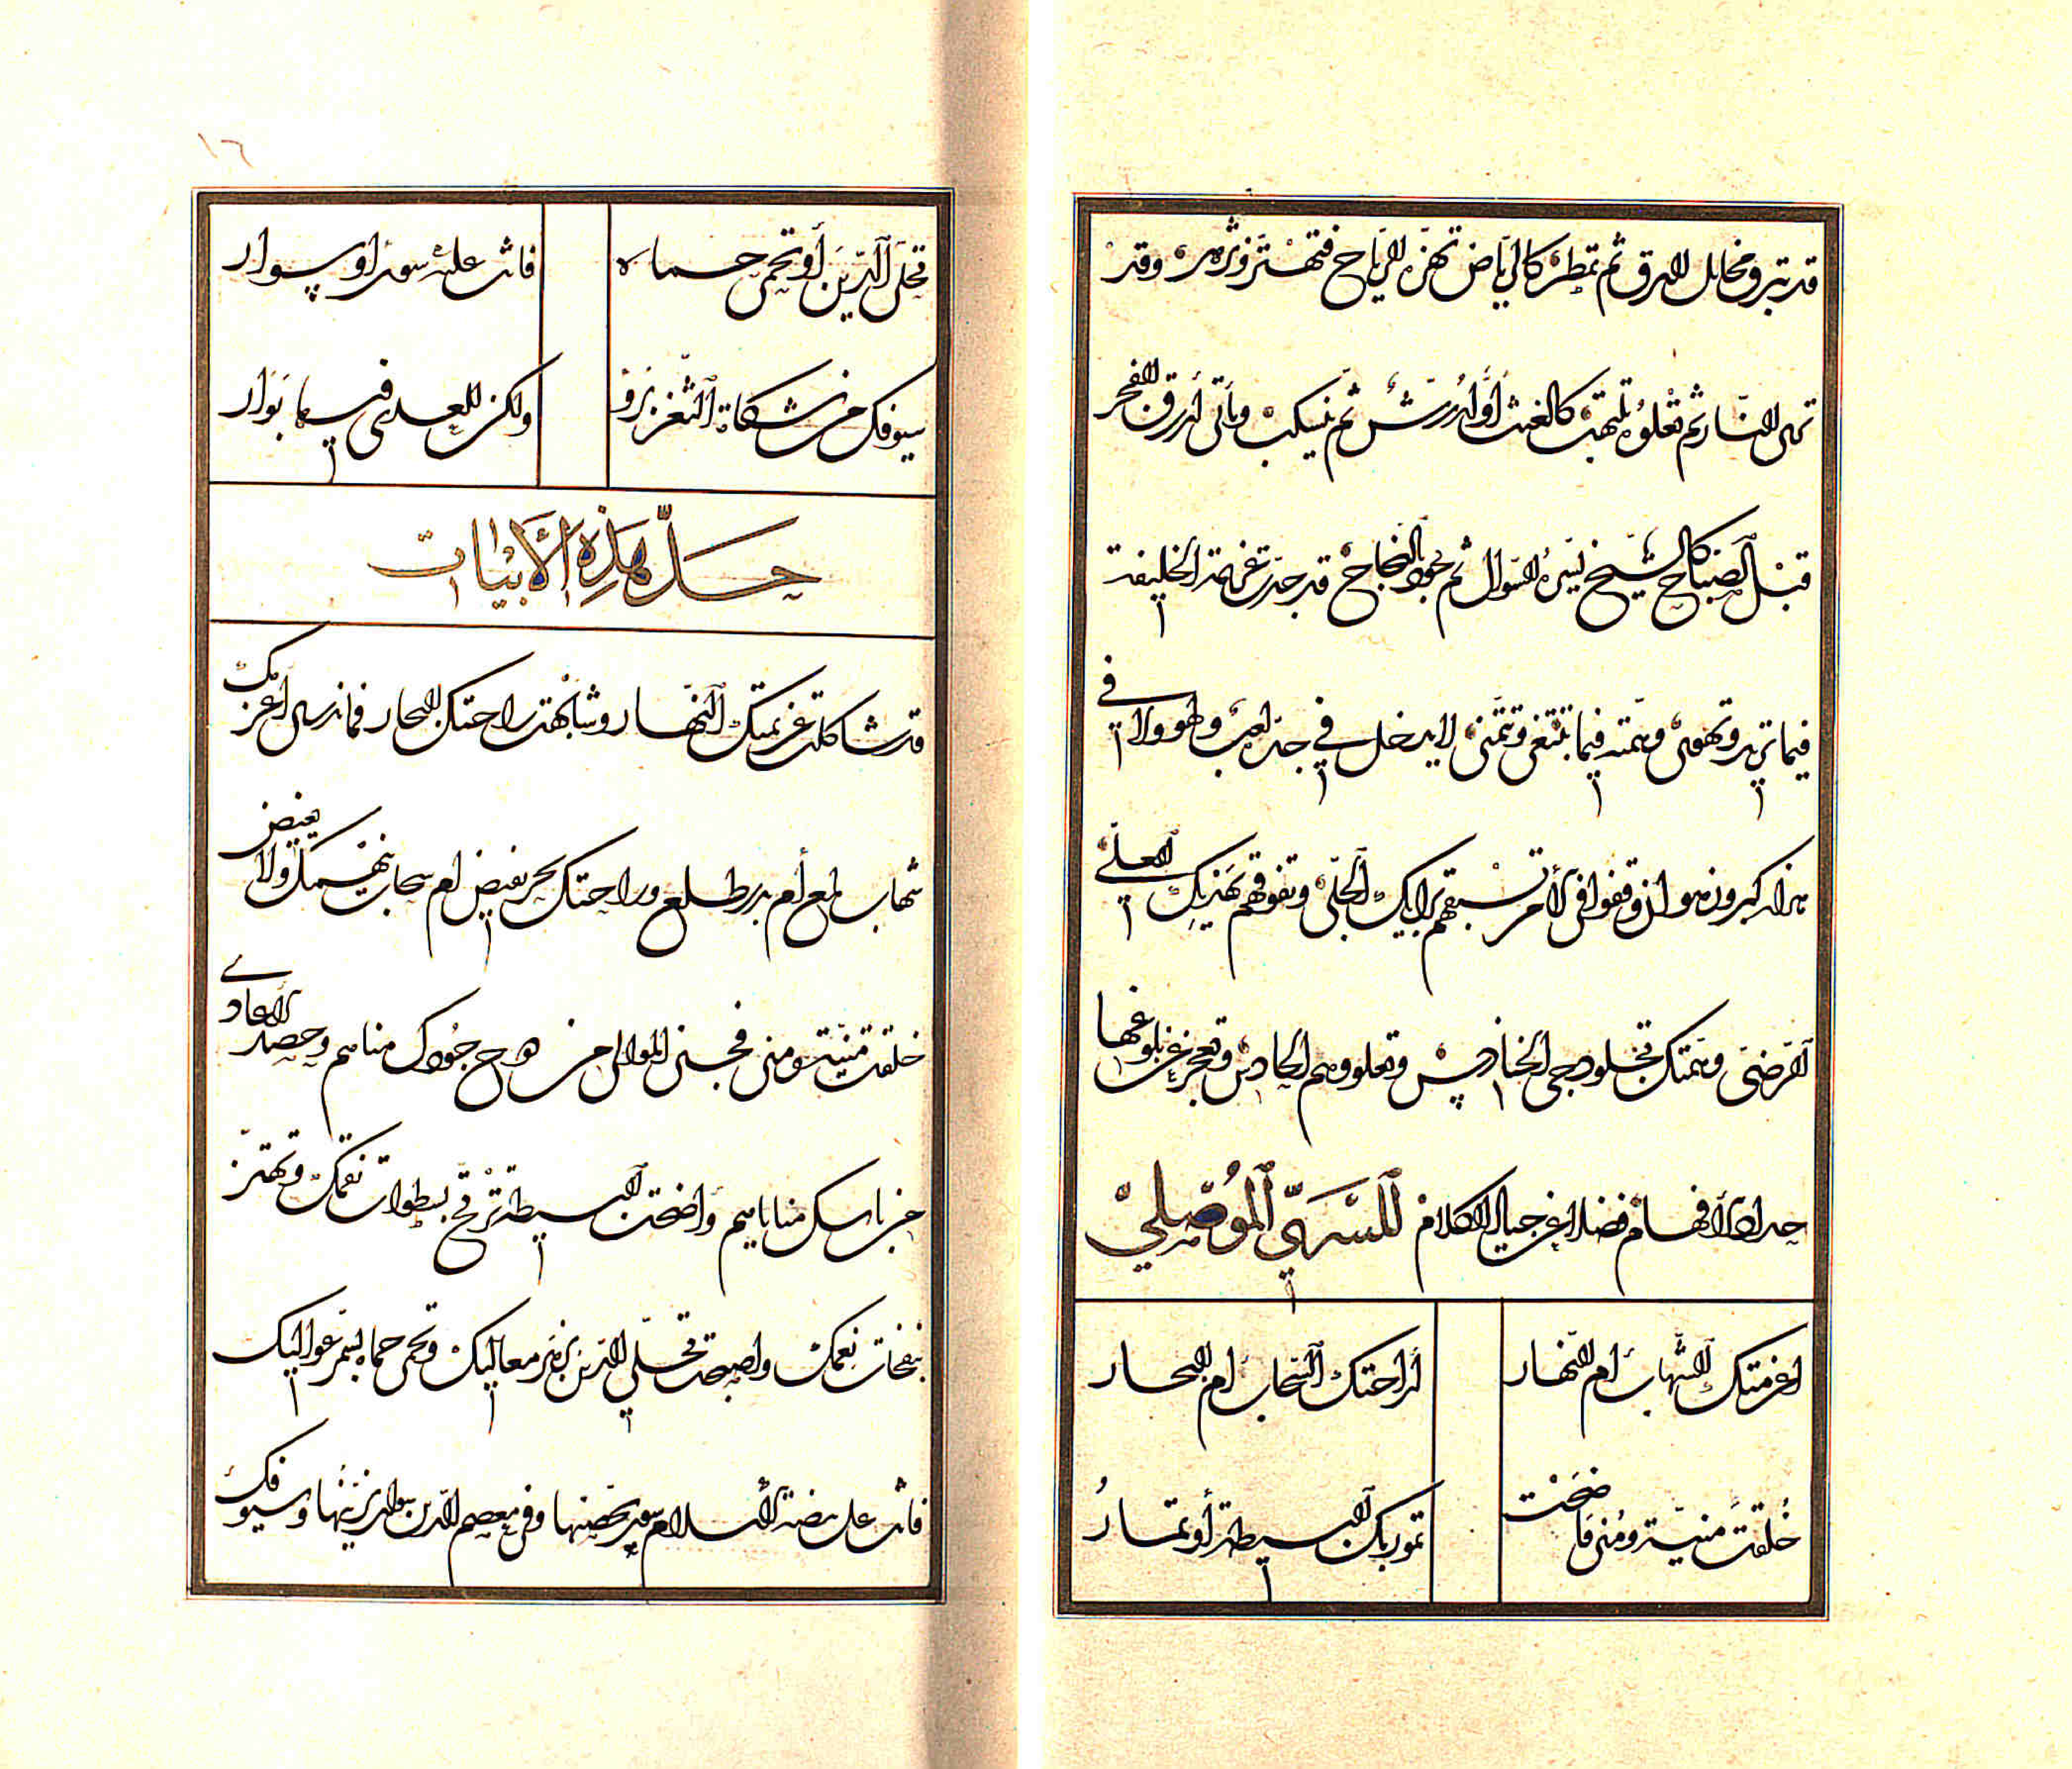 قد تبدو مخايل البرق ثم تمطر كالرياض تهزه الرياح فتهتز وتزهر وقد
ترى النار ثم تعلو تلتهب كالغيث أوله رش ثم ينسكب ويأتي أزرق الفجر
قبل الصباح كالشيخ يسره السؤال ثم حمود النجاح قد جد عزيمة الخليفة
فيما تريد وتهوى وهمته فيما تبتغي وتتمنى لا يدخل في جد لعب ولهو ولا في
هزله كبر وزهو ان وقفوا في الأمر تسبقهم برأيك الجلى وتفوقهم بهديك المعلى
المرضى وهمتك تجلو دجى الحنادس وتعلو وهم الحادس وتعجز عن بلوغها
جياد الأفهام فضلا عن جياد الكلام للسري الموصلي
اعزمتك الشهاب ام النهار
أراحتك السحاب ام البحار
خلقت منية ومنى فاضحت
تمور بك البسيطة أو تمار
تحلي الدين أو تحمي حماه
فانت عليه سور أو سوار
سيوفك من شكاة الثغر برؤ
ولكن للعدى فيها بوار
حل هذه الأبيات
قد شاكلت عزيمتك النهار وشابهت راحتك البحار فما ندري أعزمك
شهاب لمع أم بدر طلع وراحتك بحر يفيض ام سحاب ينهمك ولا يغيض
خلقت منية ومنى فجنى الموالي من جودك مناهم وحصد الأعادي
من بأسك مناياهم وأضحت البسيطة ترتج بسطوات نقمك وتهتز
بنفحات نعمك واصبحت تحلي الدين بزهر معاليك وتحمي حماه بسمر عواليك
فانت على بيضة الاسلام سور يحصنها وفي معصم الدين سوار يزينها وسيوفك
١٦